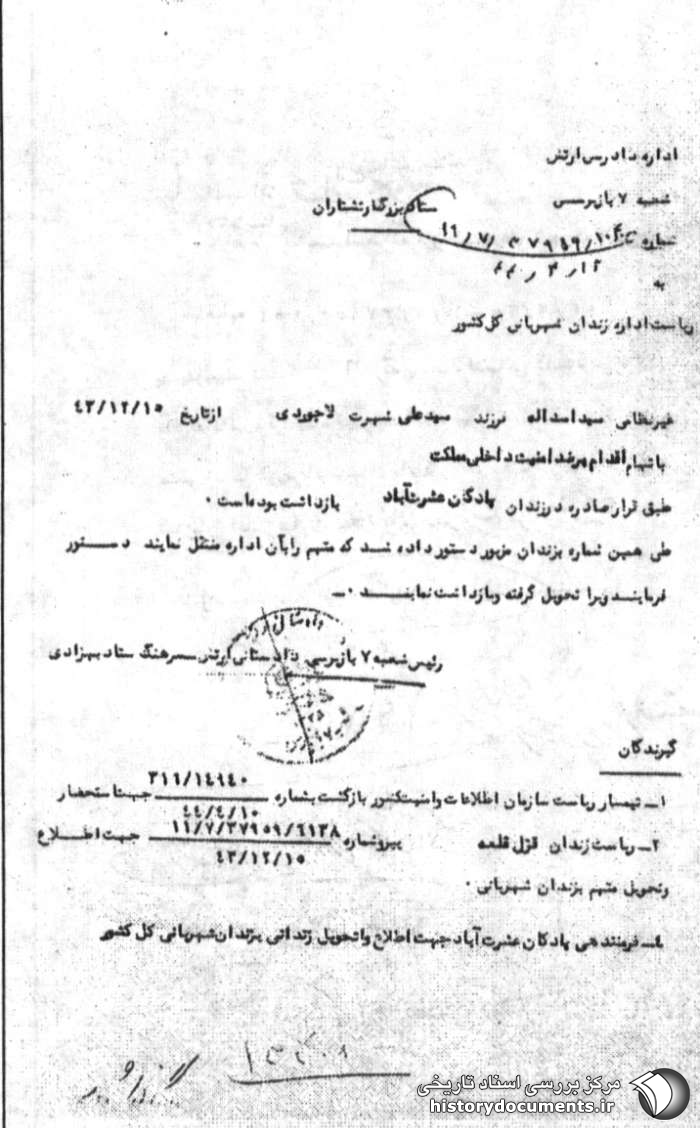 اداره دادرسی ارتش
شعبه ۷ بازپرسی
ستاد بزرگ ارتشتاران
شماره
به
ریاست اداره زندان شهربانی کل کشور
غیرنظامی سید اسداله فرزند سیدعلی شهرت لاجوردی ازتاریخ ۴۳/۱۲/۱۵
باتهام اقدام برضد امنیت داخلی مملکت
طبق قرار صادره درزندان پادگان عشرت آباد بازداشت بوده است ۰
طی همین شماره بزندان مزبور دستور داده شد که متهم رابآن اداره منتقل نمایند دستور
فرمایند ویرا تحویل گرفته وبازداشت نمایند ۰ــ
رئیس شعبه ۷ بازپرسی دادستانی ارتش سرهنگ ستاد بهزادی
گیرندگان
۱ــ تیمسار ریاست سازمان اطلاعات وامنیت کشور بازگشت بشماره ۳۱۶/۱۴۹۴۰ جهت استحضار
۴۴/۴/۱۰
۲ــ ریاست زندان قزل قلعه پیروشماره ۱۱/۷/۳۷۹۵۹/۶۱۳۸ جهت اطلاع
۴۳/۱۲/۱۵
وتحویل متهم بزندان شهربانی ۰
فرماندهی پادگان عشرت آباد جهت اطلاع وتحویل زندانی بزندان شهربانی کل کشور
مرکز بررسی اسناد تاریخی
historydocuments.ir